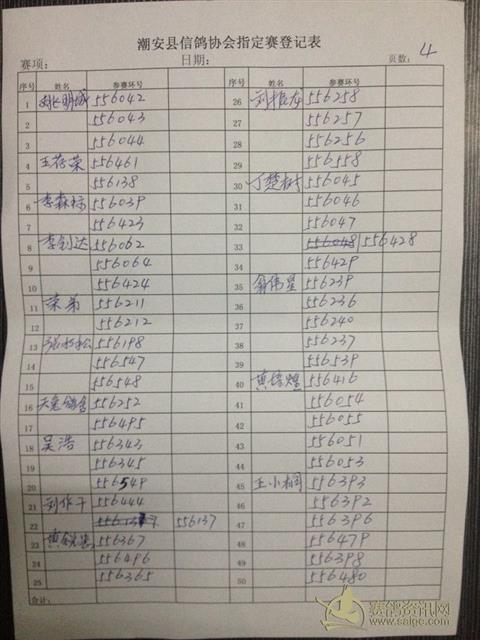 潮安县信鸽协会指定赛登记表
赛项： 日期： 页数： 4
序号 姓名 参赛环号 序号 姓名 参赛环号
1 明城 556042 26 刘 556258
2 556043 27 556257
3 556044 28 556256
4 王荣 556461 29 556558
5 556138 30 丁楚树 556045
6 李森 556039 31 556046
7 556423 32 556047
8 李创达 556062 33 556048 556428
9 556064 34 556429
10 556424 35 翁伟星 556239
11 荣弟 556211 36 556236
12 556212 37 556240
13 张松 556198 38 556237
14 556547 39 556539
15 556548 40 黄煌 556416
16 天鸽舍 556252 41 556054
17 556495 42 556055
18 吴浩 556343 43 556051
19 556345 44 556053
20 556549 45 王小 556393
21 刘作干 556444 46 556392
22 556137 47 556396
23 黄 556367 48 556479
24 556496 49 556398
25 556365 50 556480
合计：
赛鸽资讯网
www.saige.com